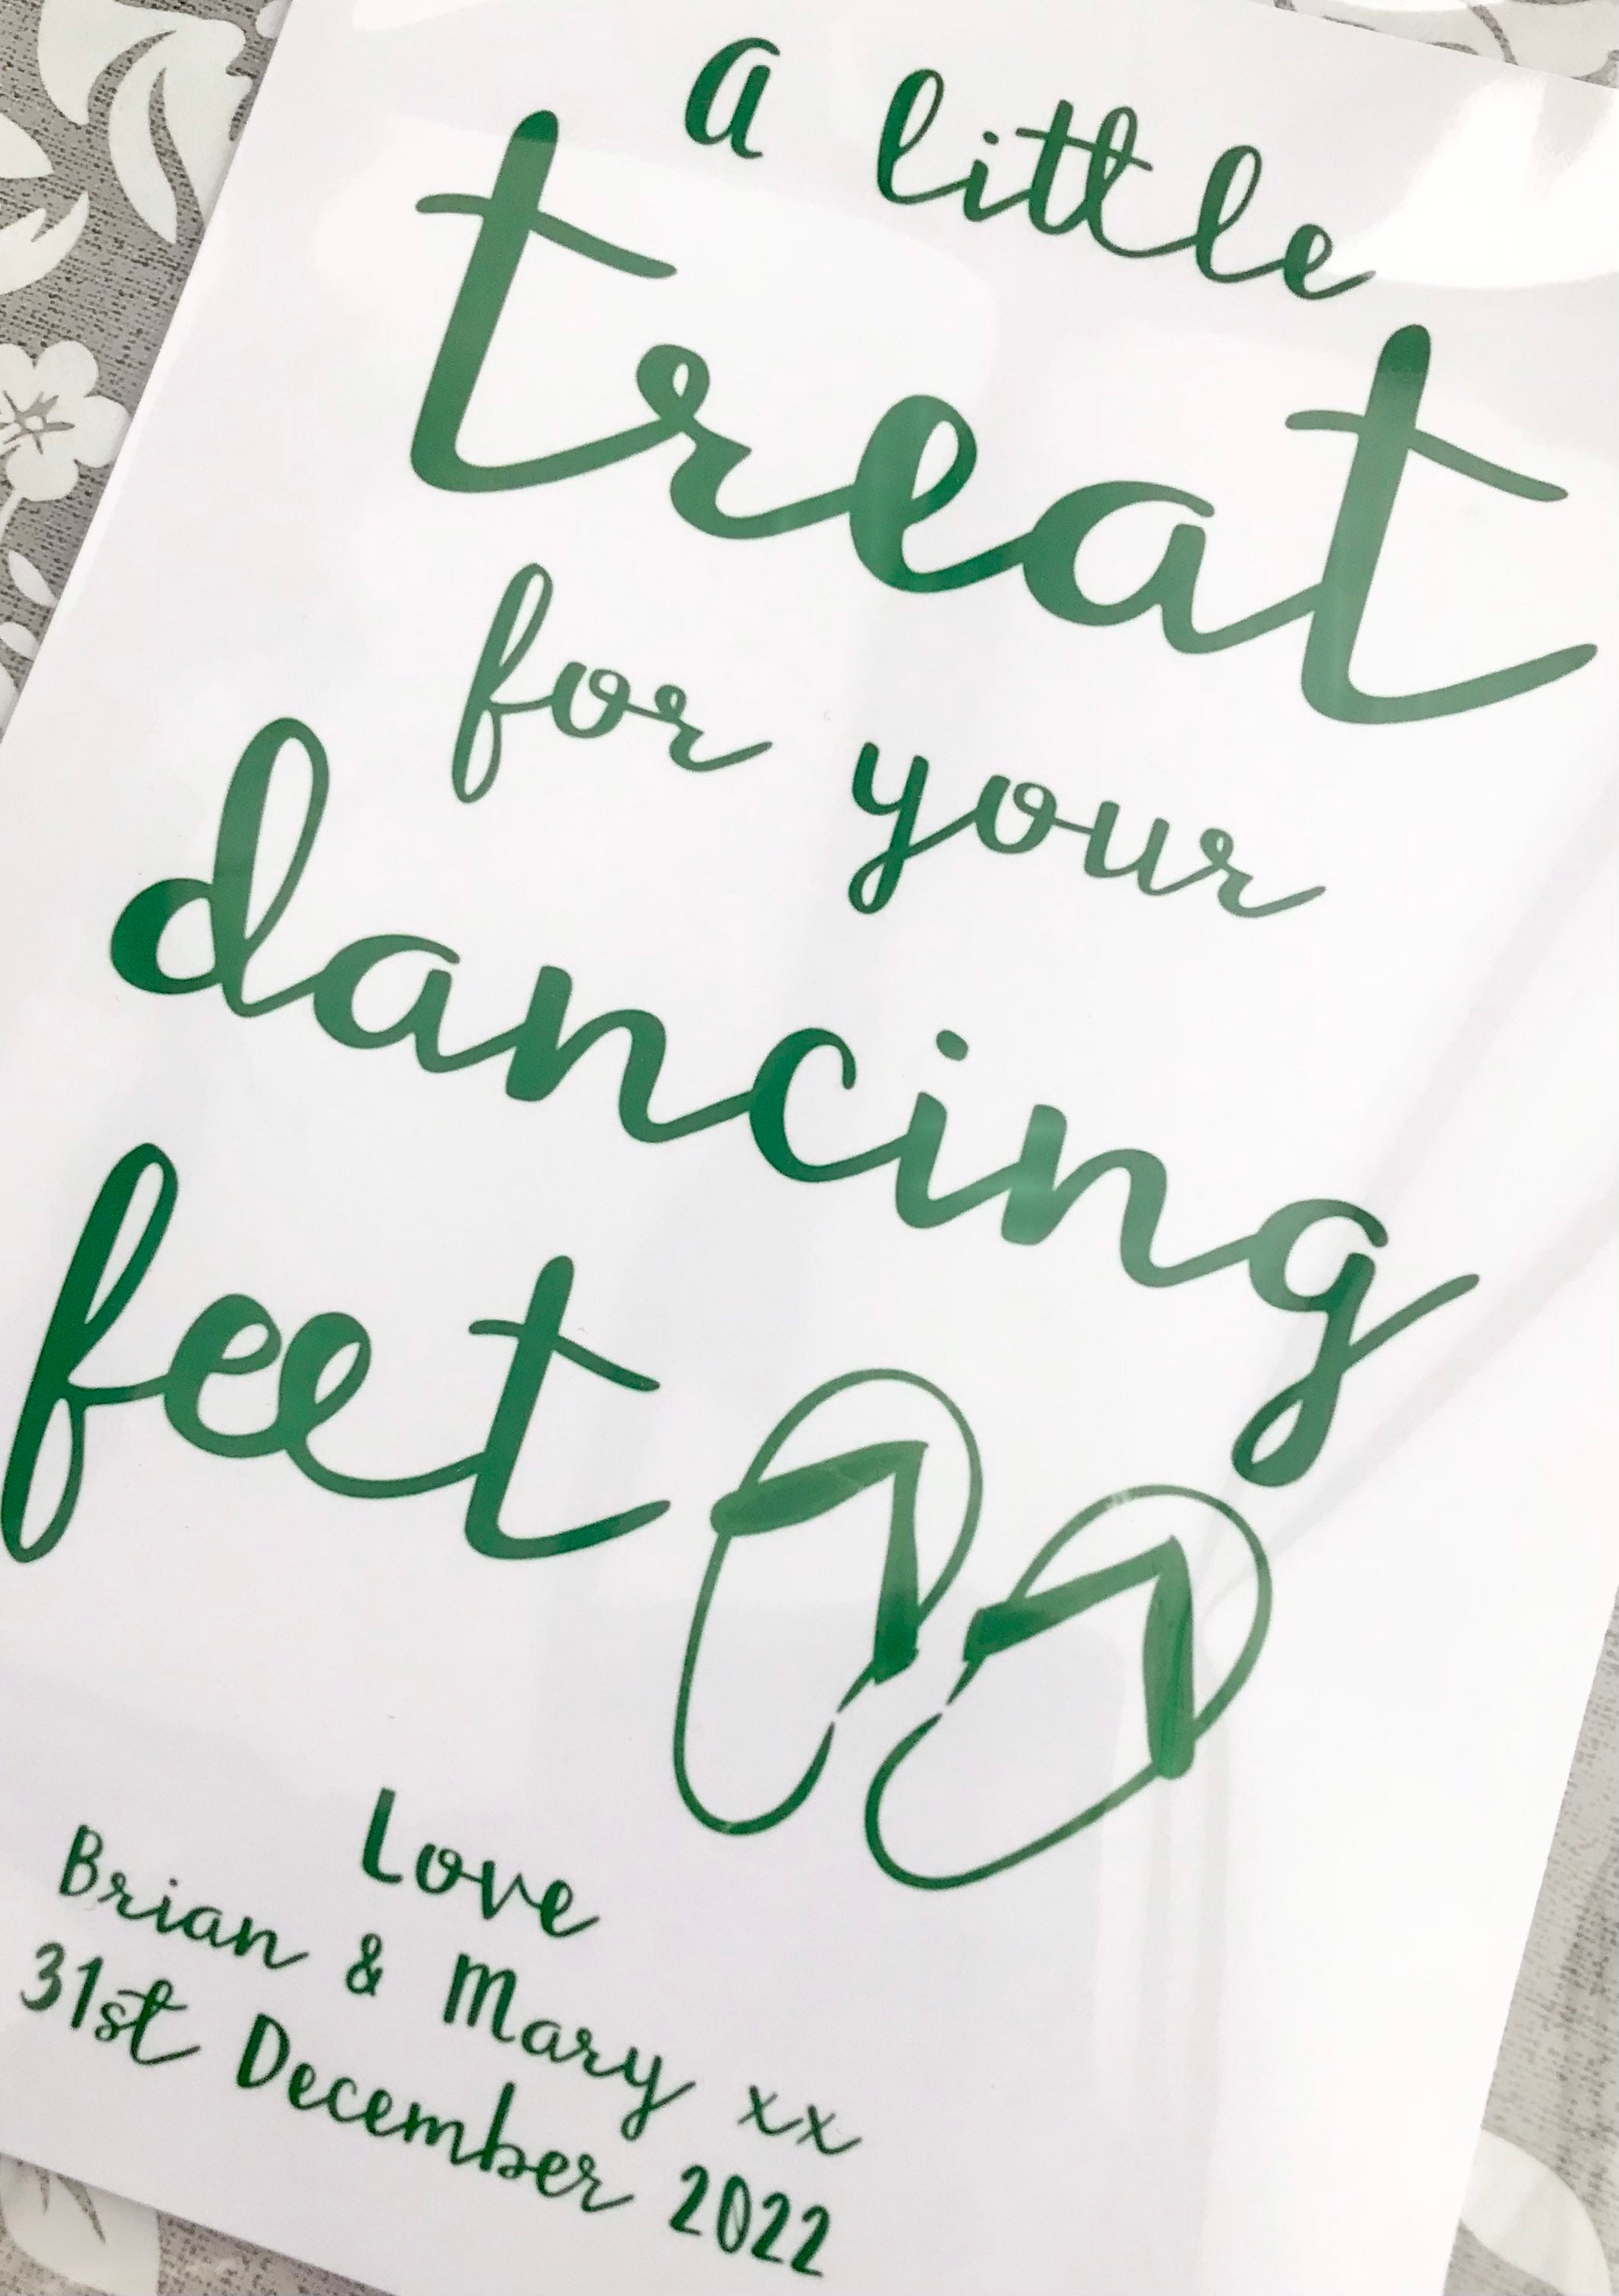 a little
treat
for your
dancing
feet
Love
Brian & Mary xx
31st December 2022